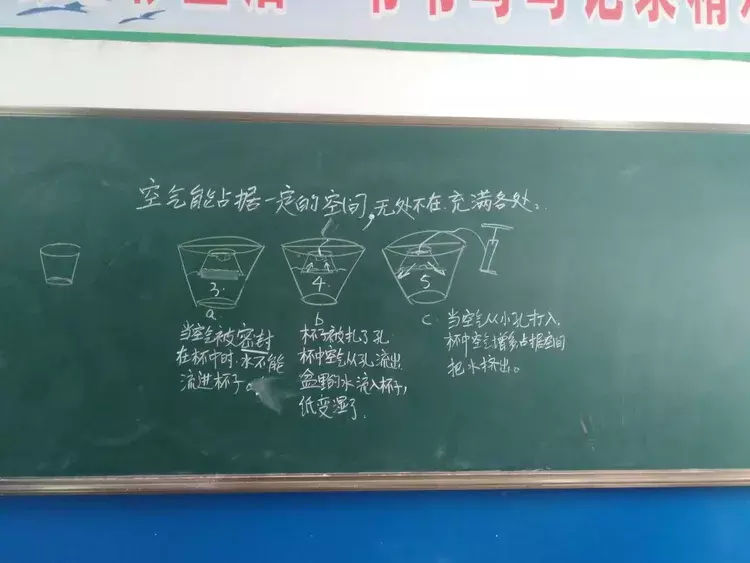 书写写记录精
空气能占据一定的空间,无处不在.充满各处。
3.
4.
5
a
b
c.
当空气被密封
在杯中时.水不能
流进杯子。
杯子被扎了孔.
杯中空气从孔流出.
盆里的水流入杯子,
低变湿了.
当空气从小孔打入,
杯中空气增多占据空间
把水挤出。